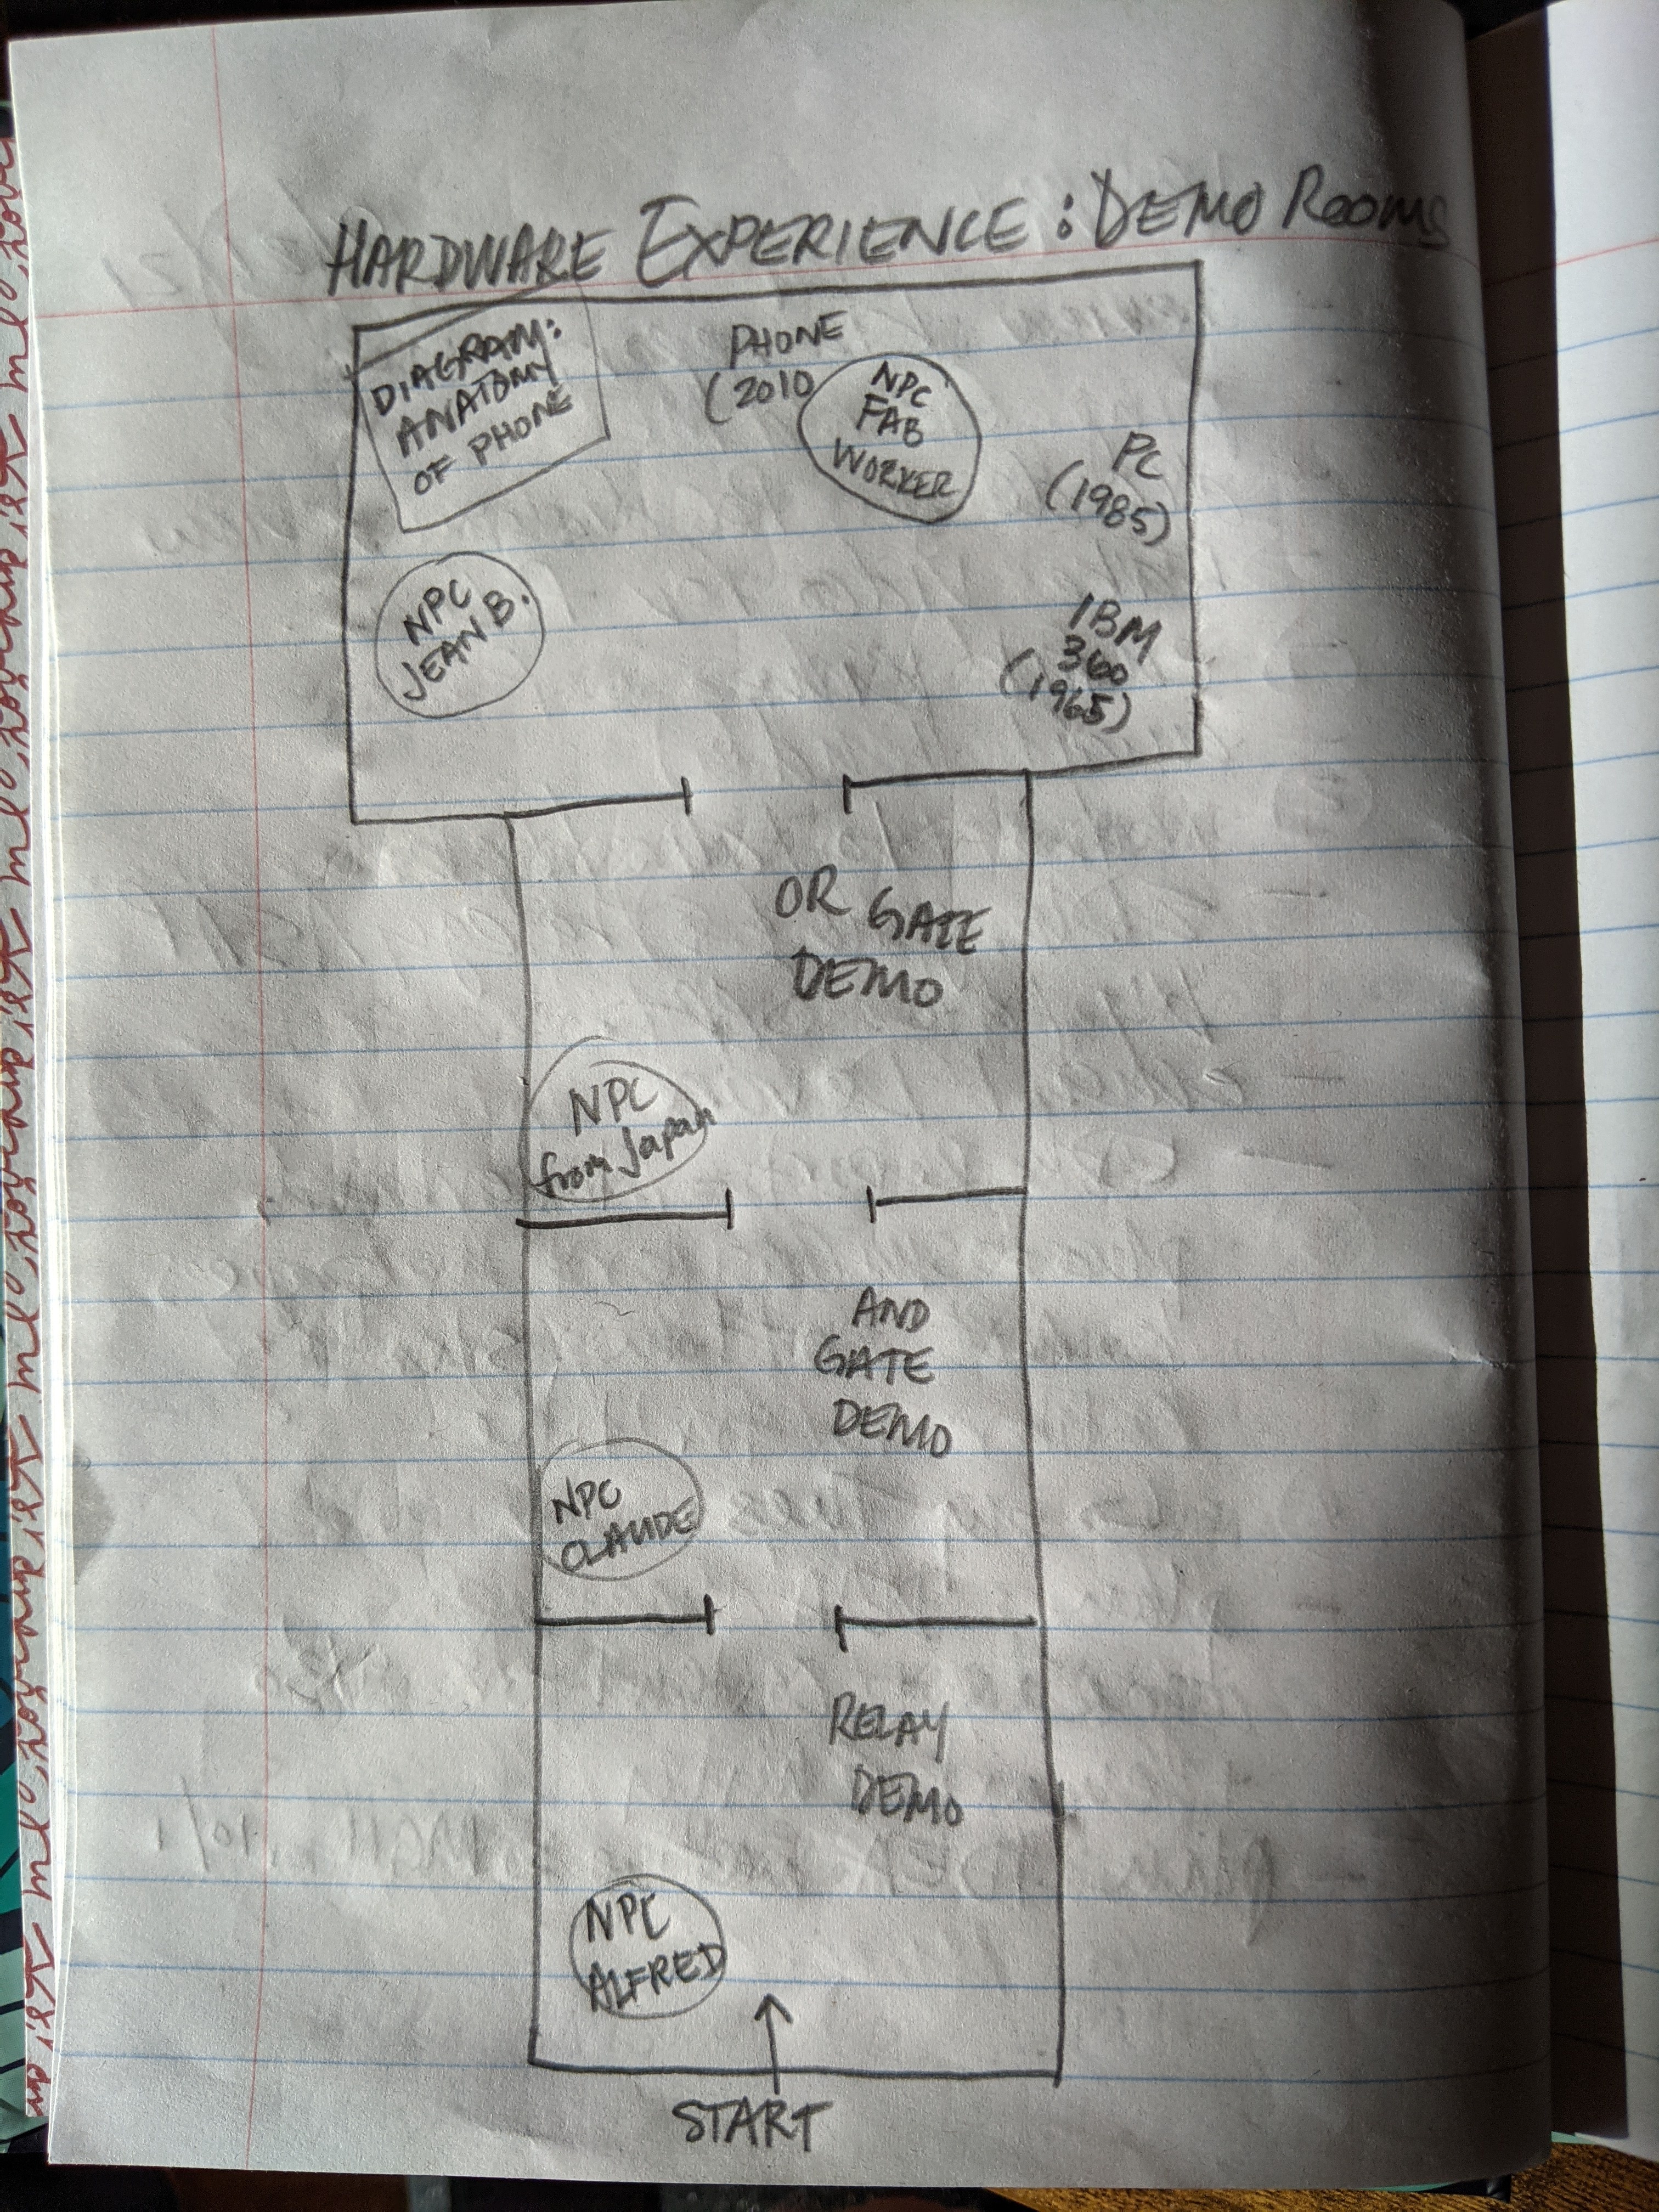 HARDWARE EXPERIENCE: DEMO ROOMS
DIAGRAM:
ANATOMY
OF PHONE
PHONE
(2010
NPC
FAB
WORKER
PC
(1985)
NPC
JEAN B.
IBM
360
(1965)
OR GATE
DEMO
NPC
from Japan
AND
GATE
DEMO
NPC
CLAUDE
RELAY
DEMO
NPC
ALFRED
START